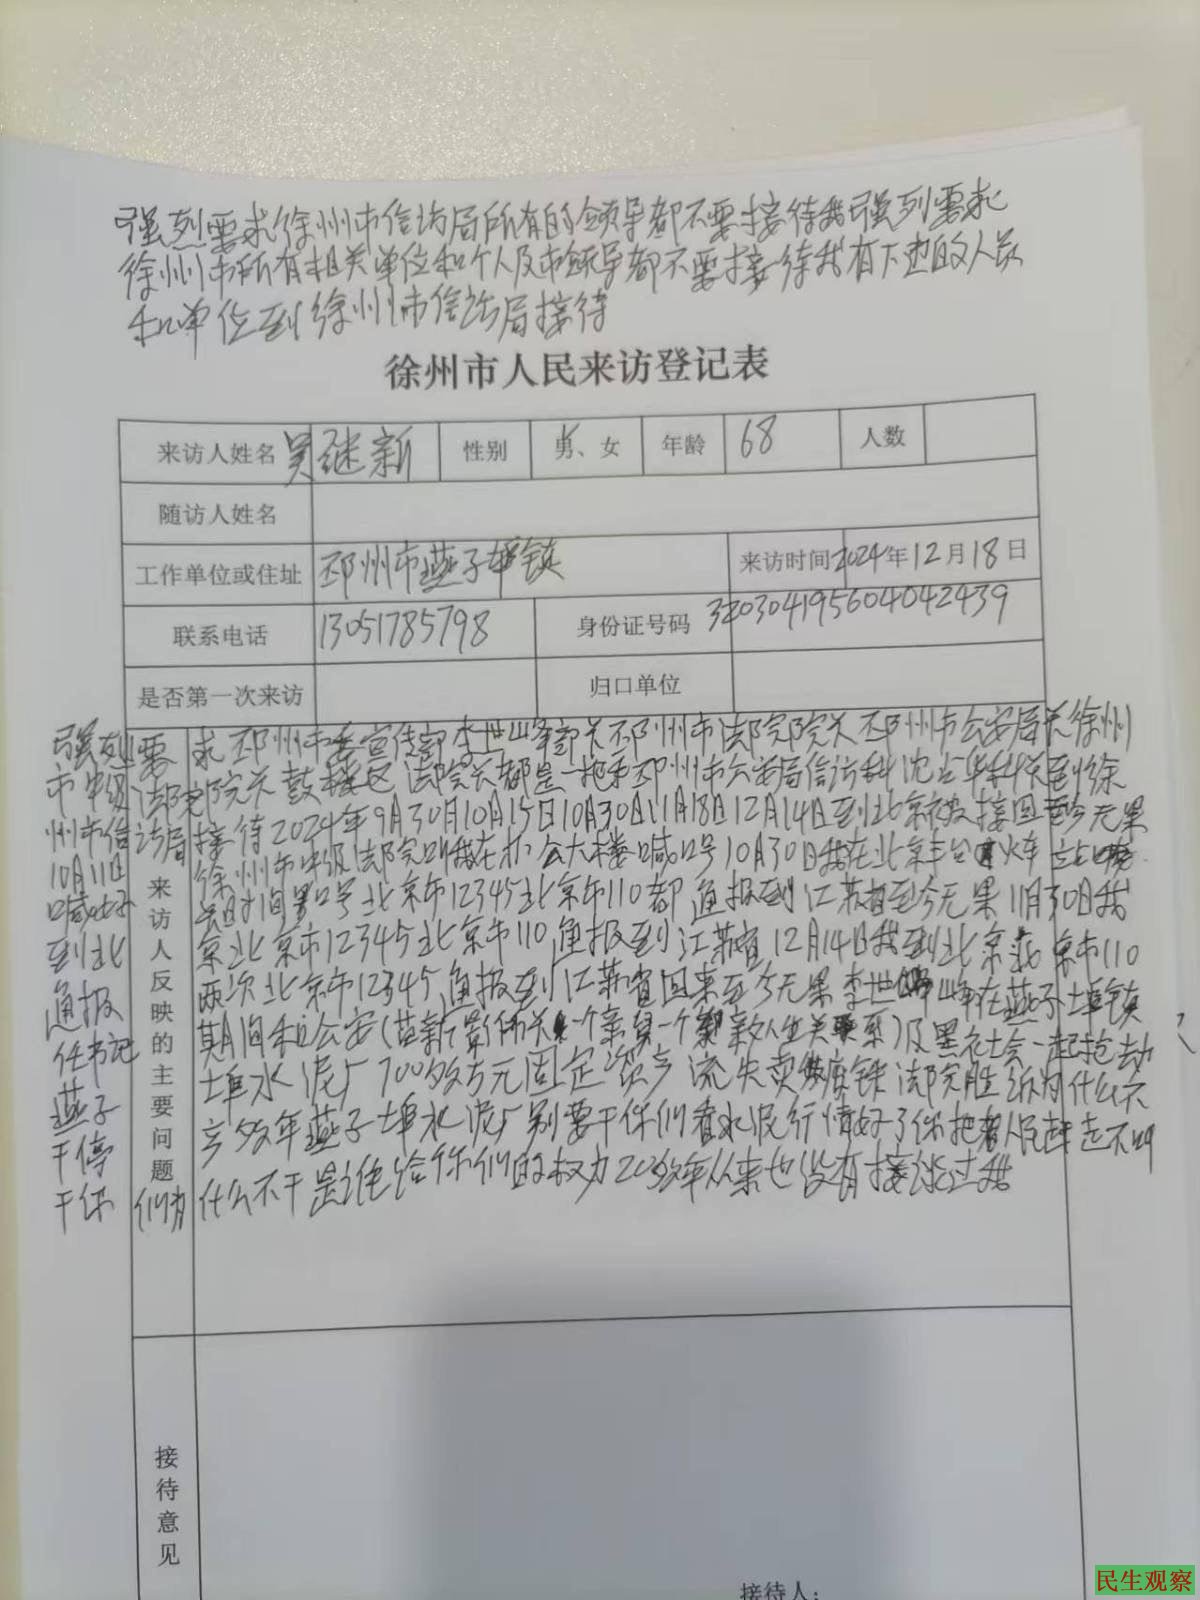 强烈要求徐州市信访局所有的领导都不要接待我强列要求
徐州市所有相关单位和个人及市领导都不要接待我有下述的人员
和单位到徐州市信访局接待
徐州市人民来访登记表
来访人姓名 吴继新 性别 男、女 年龄 68 人数
随访人姓名
工作单位或住址 邳州市燕子埠镇 来访时间 2024年12月18日
联系电话 13051785798 身份证号码 320304195604042439
是否第一次来访 归口单位
强烈要求邳州市委宣传部李世峰部长邳州市法院院长邳州市公安局长徐州
市中级法院院长鼓楼区法院长都是一把手邳州市公安局信访科沈占华科长到徐
州市信访局接待2024年9月30日10月15日10月30日11月18日12月14日到北京被接回至今无果
10月11日徐州市中级法院叫我在办公大楼喊口号10月30日我在北京丰台火车站
喊好长时间口号北京市12345北京市110都通报到江苏省至今无果11月30日我
到北京北京市12345北京市110通报到江苏省12月14日我到北京 京市110
通报两次北京市12345通报到江苏省回来至今无果李世峰在燕子埠镇
任书记期间和公安(苗新 影侨关 一个亲舅一个 亲人生关系)及黑社会一起抢劫
燕子埠水泥厂700多万元固定资产流失卖废铁法院胜诉为什么不
干停产多年燕子埠水泥厂别要干你们看水泥行情好了你把着人民赶走不叫
干你们为什么不干是谁给你们的权力20多年从来也没有接谈过我
来访人反映的主要问题
接待意见
接待人：
民生观察